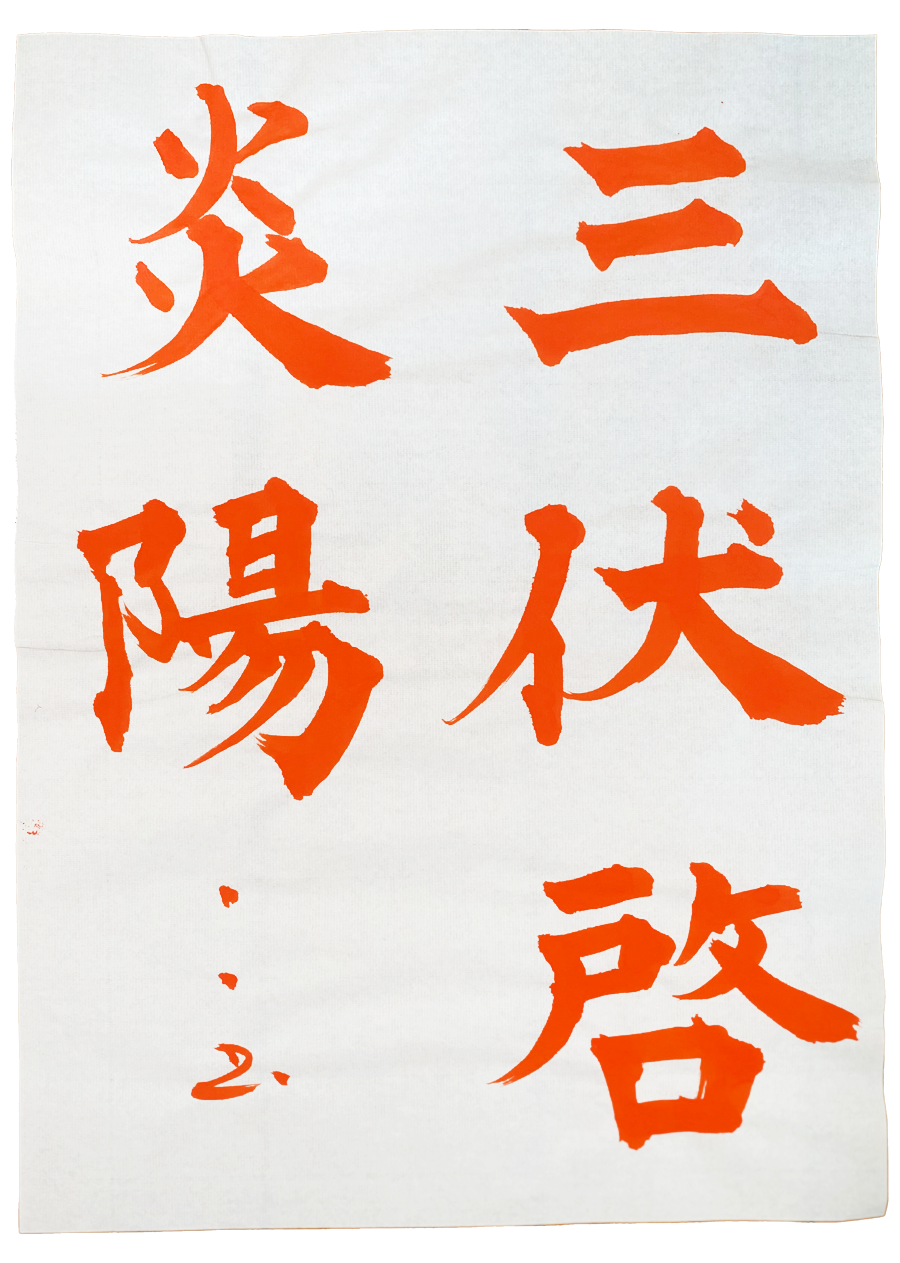 三伏啓
炎陽